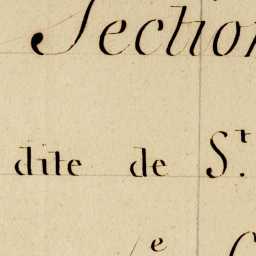 Section
dite de S.t